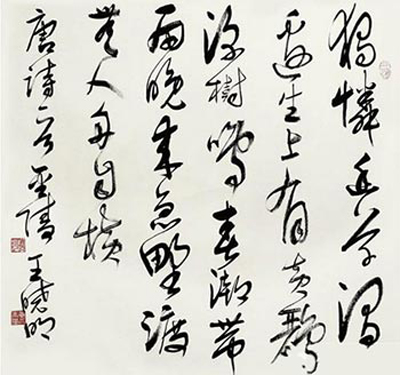 獨憐幽草澗
邊生上有黃鸝
深樹鳴春潮帶
雨晚來急野渡
無人舟自橫
唐詩 王曉明